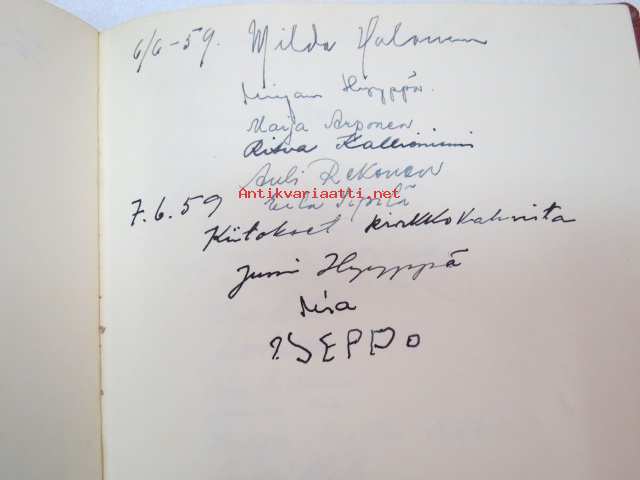 6/6-59. Milda Halonen
Mirjam Hyyppä.
Maija Arponen
Ritva Kallioniemi
Auli Rekonen
Antikvariaatti.net
Eila
7.6.59
Kiitokset kirkkokahvista
Jussi Hyyppä
SEPPO